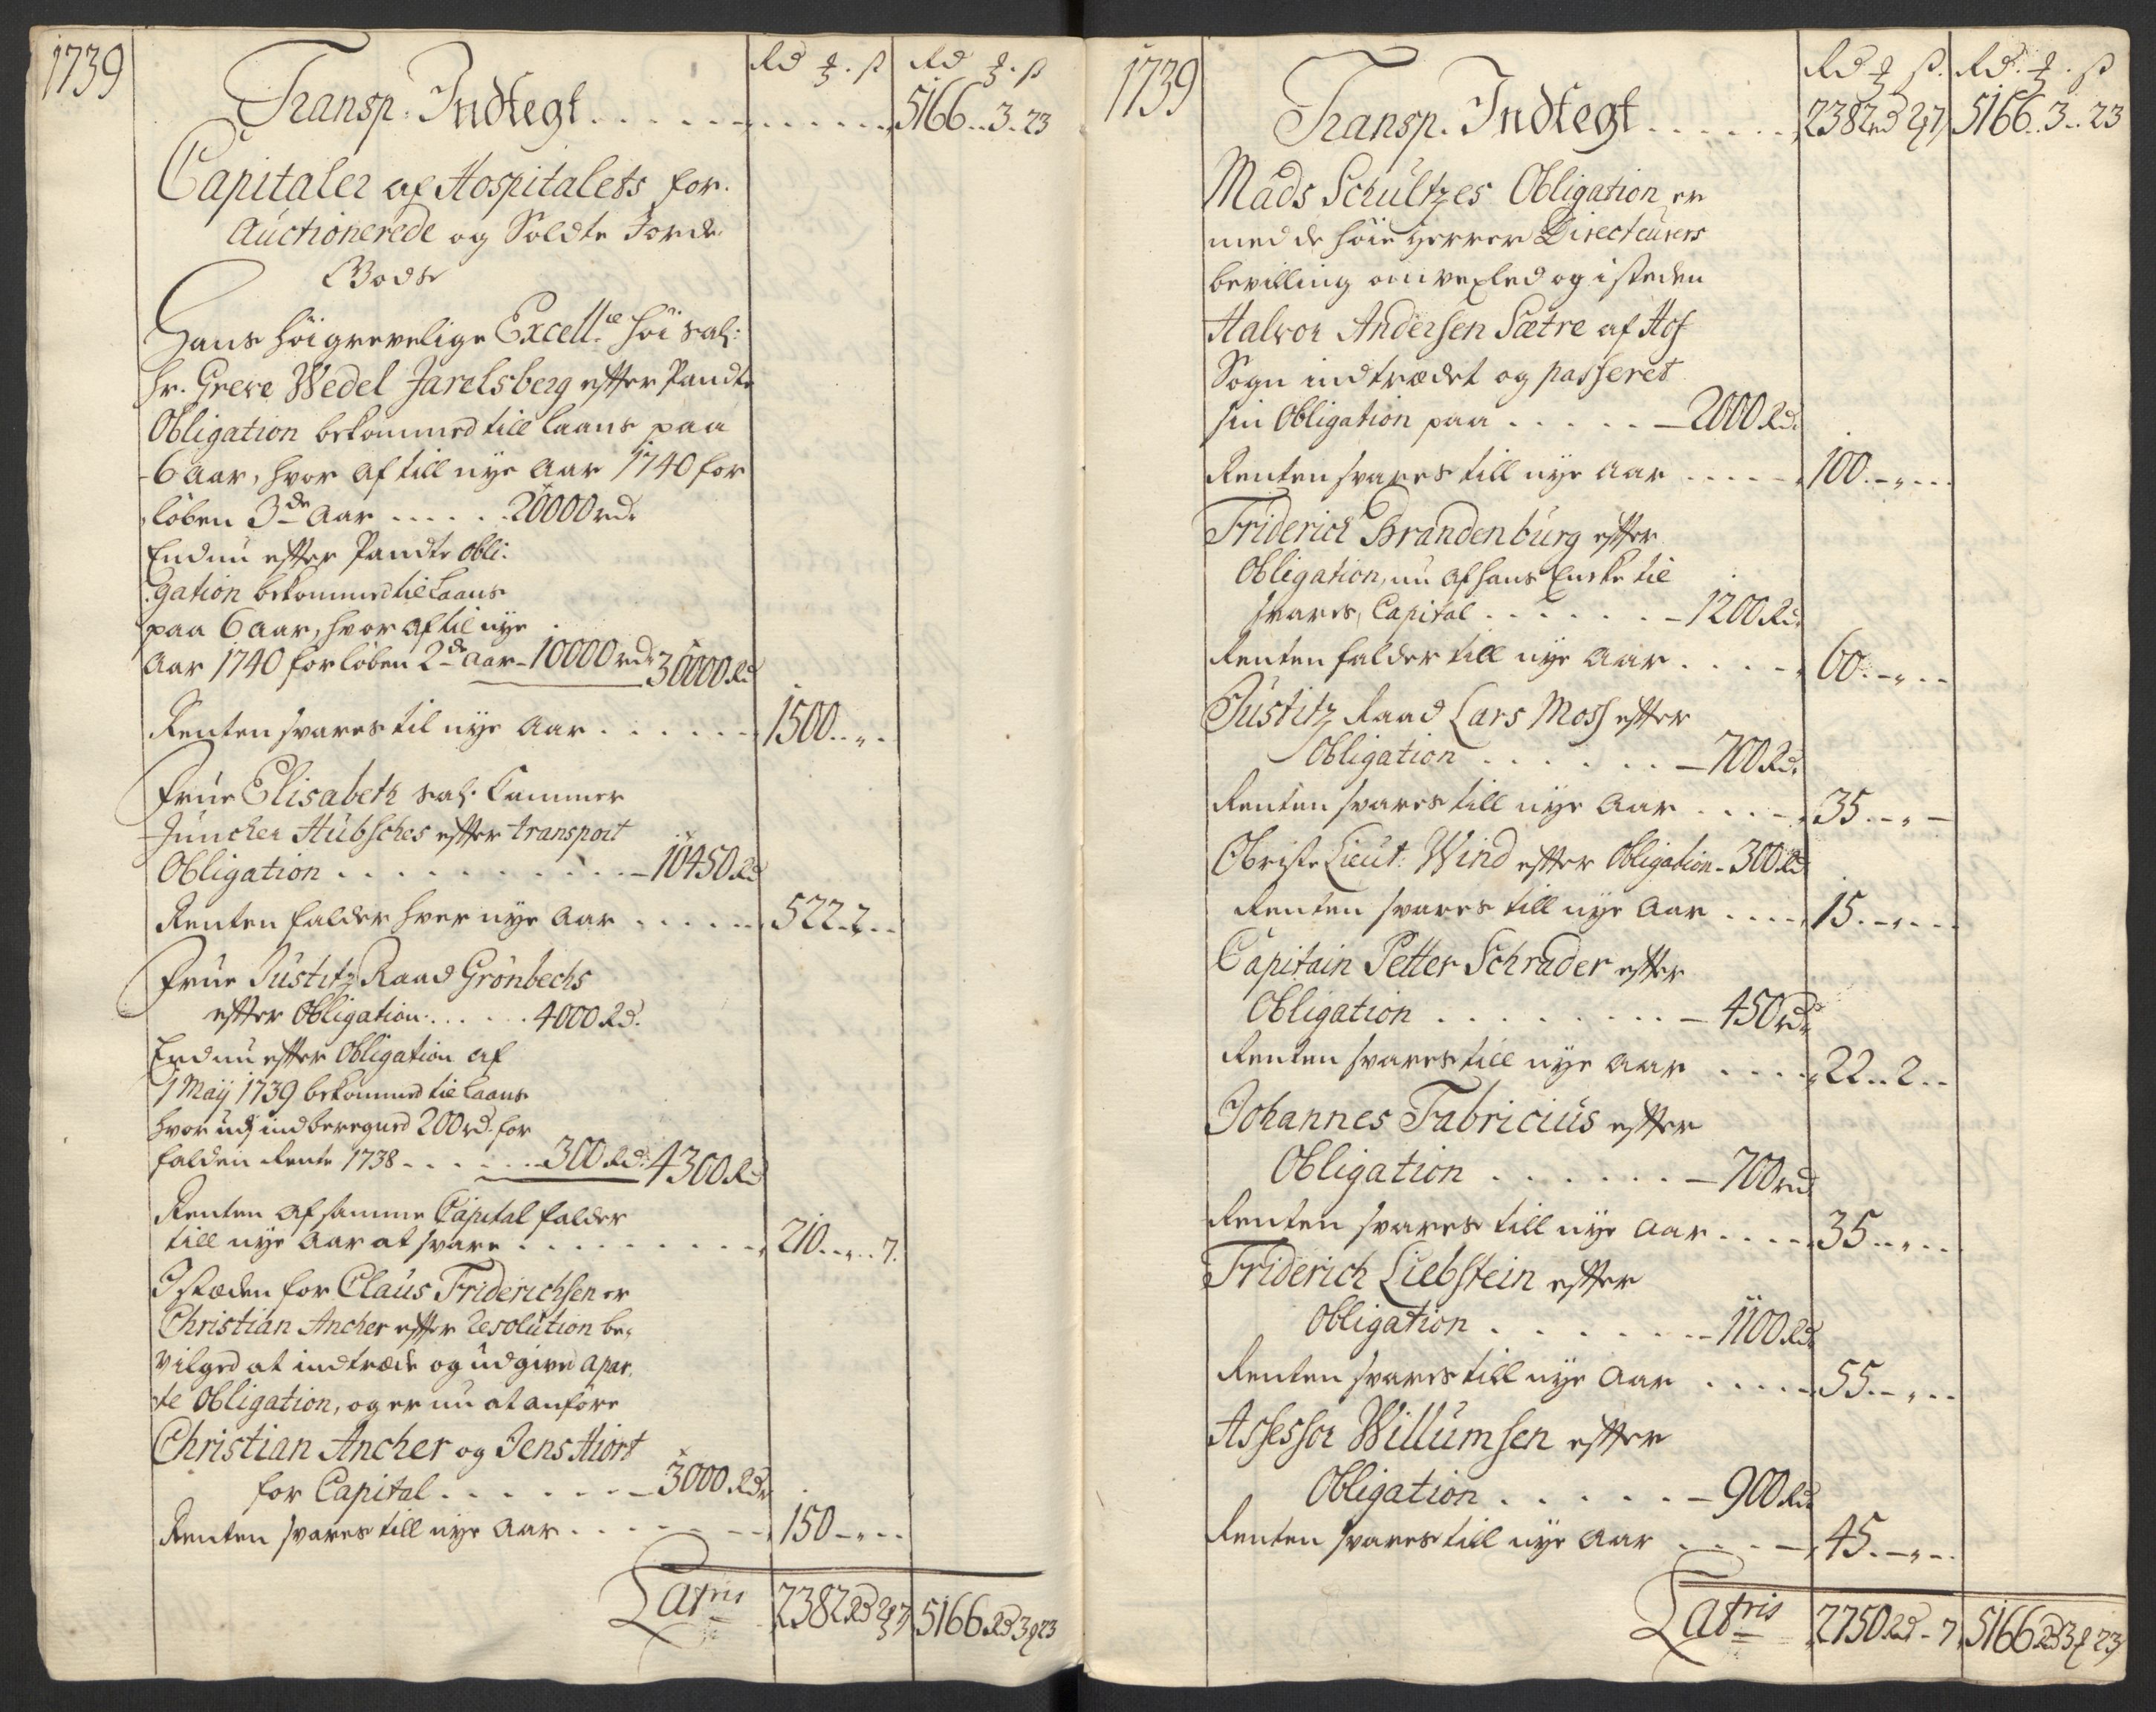 1739
Rd ß Rd ß
Transp. Indtegt . . . . . . . . . . . 5166 .. 3 .. 23
Capitaler af Hospitalets for-
Auctionerede og Soldte Jorde-
Gods
Hans høigrevelige Excell.ce høi Sal:
Hr. Greve Wedel Jarelsberg efter Pandte
Obligation bekommed till Laans paa
6 Aar, hvor af till nye Aar 1740 for
løben 3de Aar . . . . . 20000 rdr
Endnu efter Pandte Obli-
gation bekommed til Laans
paa 6 Aar, hvor af til nye
Aar 1740 forløben 2de Aar - 10000 rdr 30000 Rd
Renten svares til nye Aar . . . . . . 1500 .. „ .
Frue Elisabeth Sal. Cammer
Juncker Hübsches efter transport
Obligation . . . . . . . . . . . 10450 Rd
Renten falder hver nye Aar . . . . . . 522 .. 2 ..
Frue Justitz Raad Grønbechs
efter Obligation . . . . . 4000 Rd.
Endnu efter Obligation af
1 Maij 1739 bekommed til Laans
hvor udj indberegned 200 rd. for
falden Rente 1738 . . . . . . 300 Rd. 4300 Rd
Renten af samme Capital falder
till nye Aar at svare . . . . . . . . . 210 .. „ .. 7.
I stæden for Claus Friderichsen er
Christian Ancher efter Resolution be-
vilged at indtræde og udgive apar-
te Obligation, og er nu at anføre
Christian Ancher og Jens Hiort
for Capital . . . . . . . 3000 Rdr
Renten svares till nye Aar . . . . . . . . 150 - „ - -
Latris 2382 Rd 2 7 5166 Rd 3 23
1739
Rd ß. Rd. ß
Transp. Indtegt . . . . . . 2382 rd 2 7 5166 .. 3 .. 23
Mads Schultzes Obligation er
med de høie Herrer Directeurers
bevilling omvexled og isteden
Halvor Andersen Sætre af Hof
Sogn indtrædet og passeret
sin Obligation paa . . . . . . - 2000 Rd.
Renten svares till nye Aar . . . . . . 100 - „ - -
Friderich Brandenburg efter
Obligation, nu af hans Encke til
svares, Capital . . . . . . . - 1200 Rd.
Renten falder till nye Aar . . . . - 60 - „ - -
Justitz Raad Lars Moss efter
Obligation . . . . . . . - 700 Rd.
Renten svares till nye Aar . . . - 35 - „ -
Obriste Lieut: Wind efter Obligation - 300 Rd
Renten svares till nye Aar . . . . . 15 - „ - -
Capitain Petter Schrader efter
Obligation . . . . . . . . . - 450 rdr
Renten svares till nye Aar . . . . . 22 .. 2 ..
Johannes Fabricius efter
Obligation . . . . . . . - 700 rd
Renten svares till nye Aar . . . . . 35 .. „ ..
Friderich Liebstein efter
Obligation . . . . . . . - 1100 Rd
Renten svares till nye Aar . . . . . 55 - „ - -
Assessor Willumsen efter
Obligation . . . . . . - 900 Rd
Renten svares till nye Aar . . . . - 45 - „ - -
Latris 2750 Rd - 7 5166 Rd 3 23